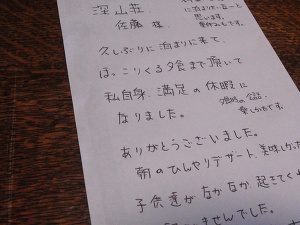 深山荘.
佐藤 様
に泊まりたいなーと
思います。
久しぶりに泊まりに来て、
ほっこりくる夕食まで頂いて
私自身、満足の休暇に
なりました。
ありがとうございました。
朝のひんやりデザート、美味しかった
子供達がなかなか、起きてく
ませんでした。